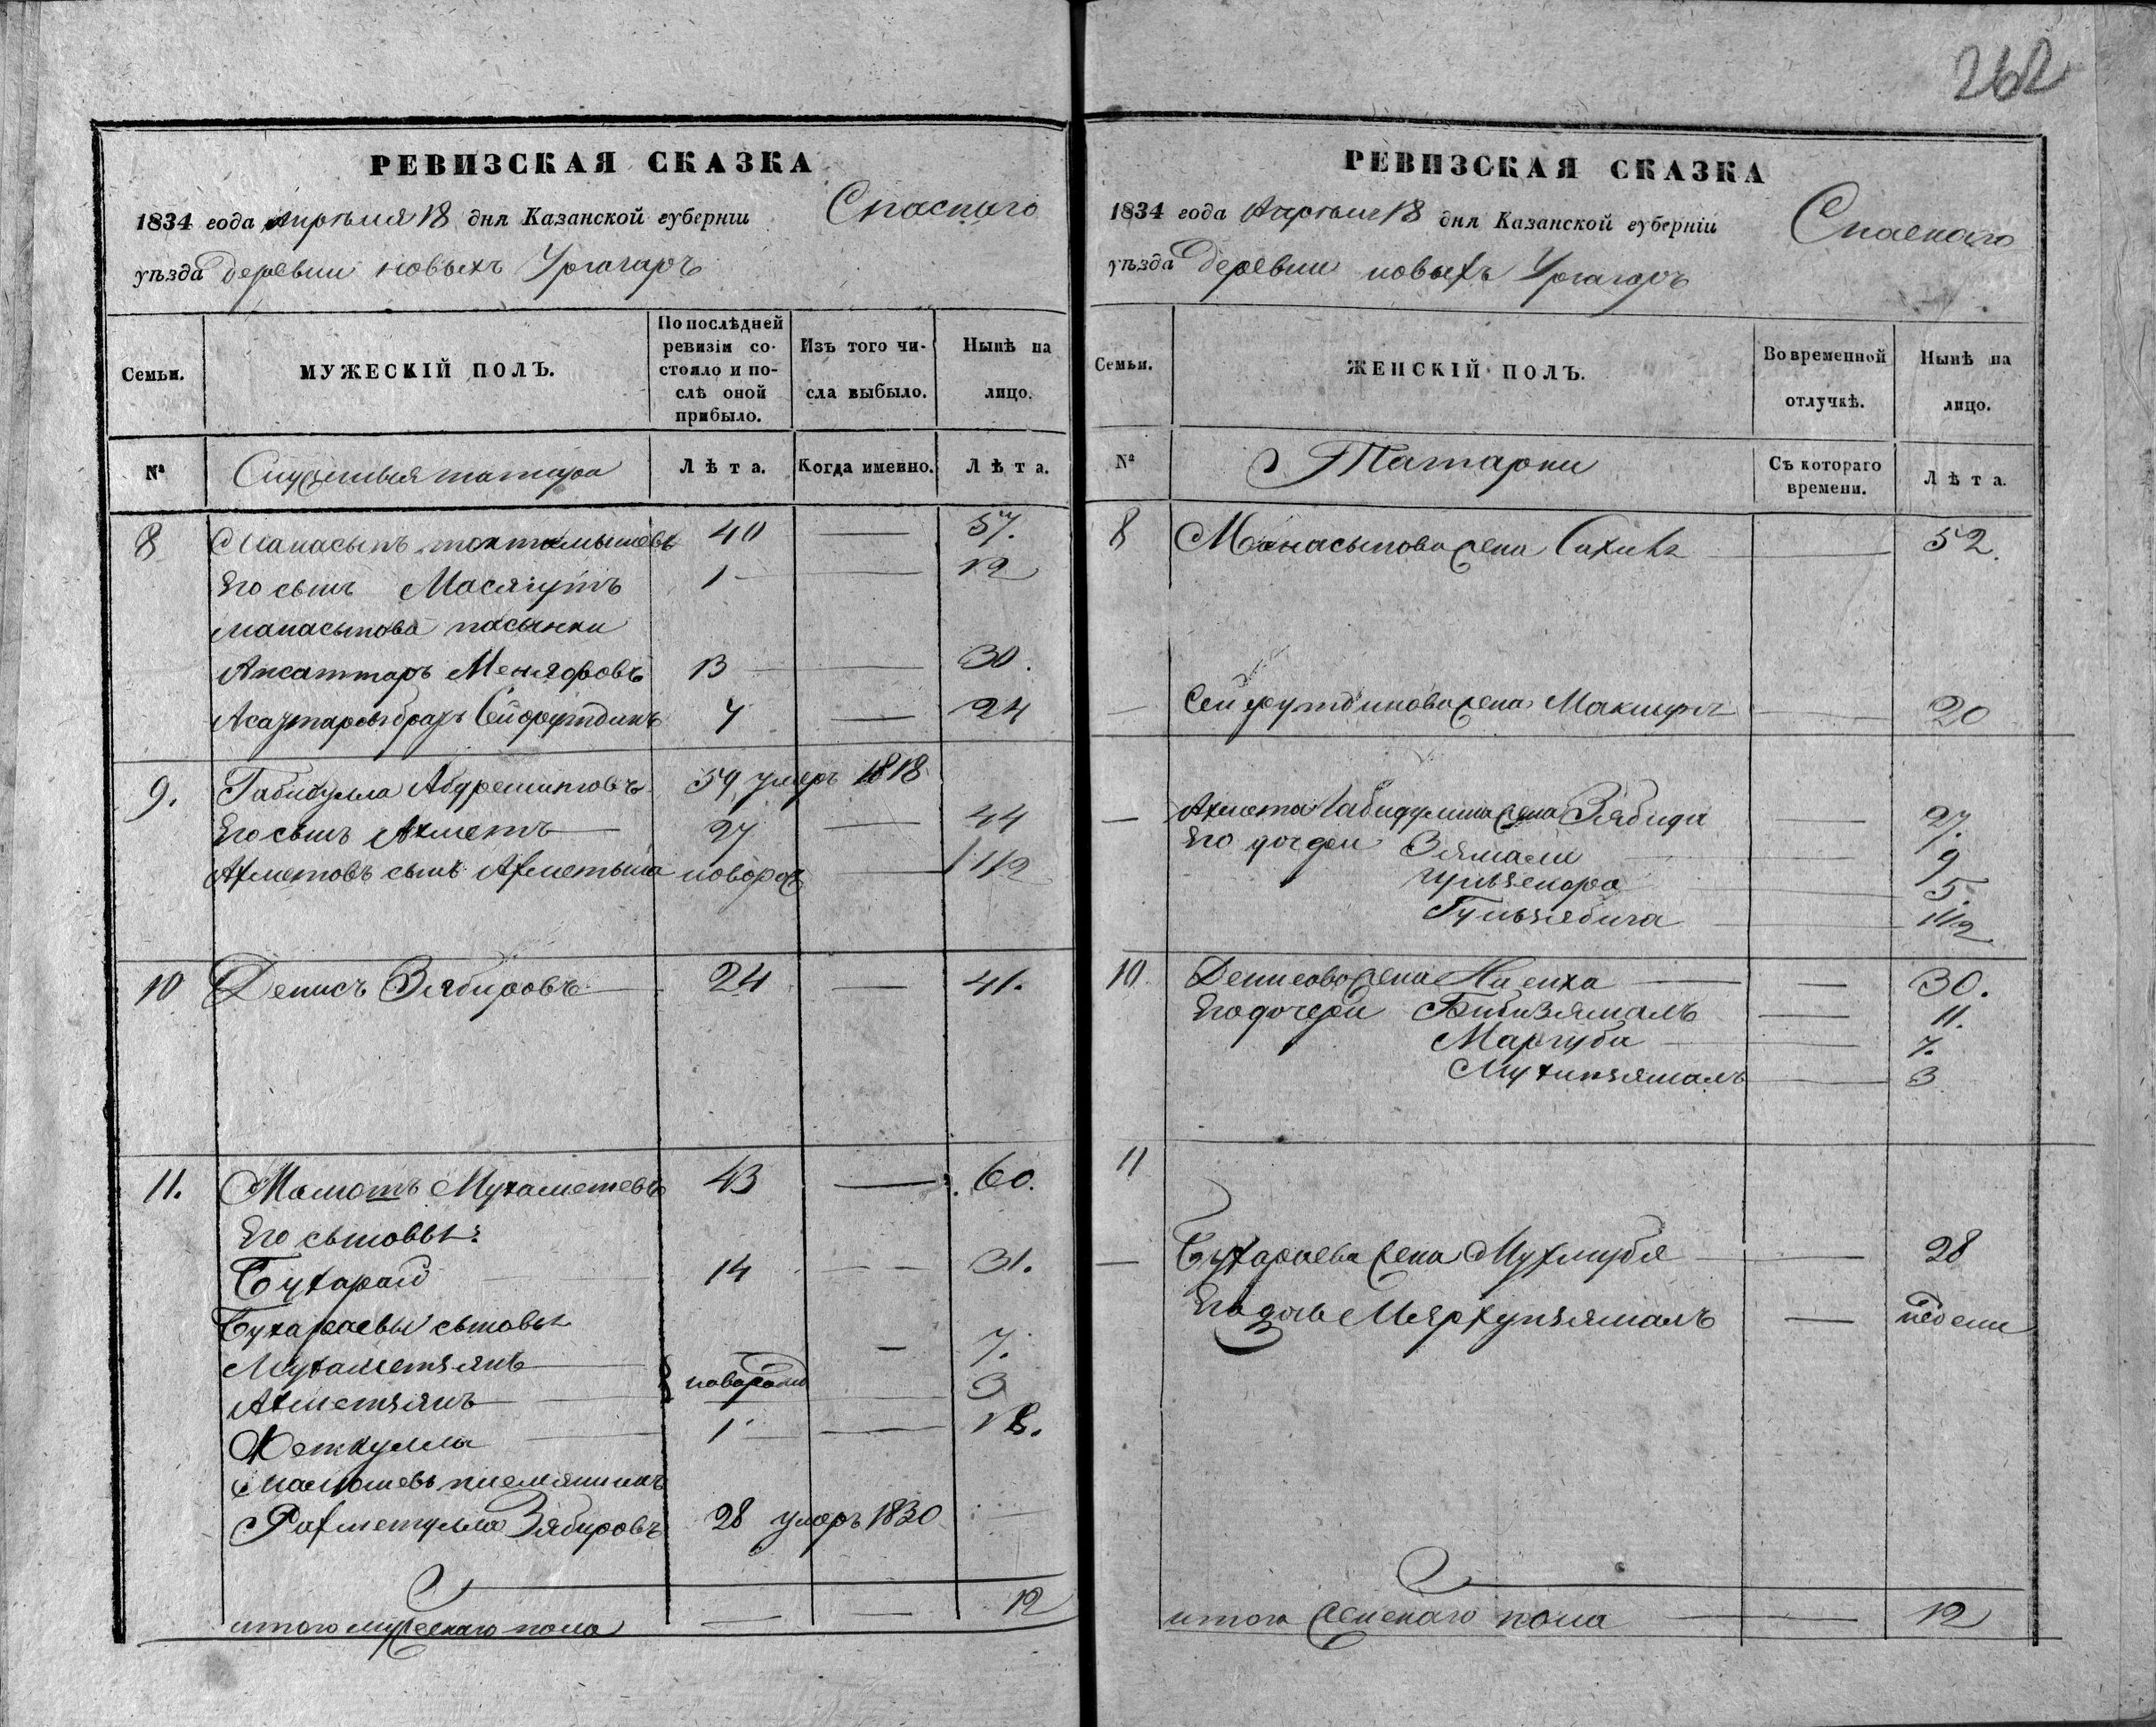 262
РЕВИЗСКАЯ СКАЗКА
1834 года Апрѣля 18 дня Казанской губерніи Спаскаго
уѣзда деревни новыхъ Ургагаръ
Семьи.
МУЖЕСКІЙ ПОЛЪ.
По послѣдней ревизіи состояло и послѣ оной прибыло.
Изъ того числа выбыло.
Нынѣ на лицо.
№
Служивыя татара
Лѣта.
Когда именно.
Лѣта.
8 Манасыпъ токтамышевъ 40 — 57.
Его сынъ Масягутъ 1 — 18
манасыпова пасынки
Апсаттаръ Меняфовъ 13 — 30.
Асаттаровъ братъ Сейфутдинъ 7 — 24
9. Габидулла Абдрешитовъ 59 умеръ 1818
Его сынъ Ахметъ 27 — 44
Ахметовъ сынъ Ахметьша новорож — 1 1/2
10 Денисъ Зябировъ 24 — 41.
11. Мамотъ Мухаметевъ 43 — 60.
Его сыновья:
Бухарай 14 — 31.
Бухараевы сыновья
Мухаметзянъ — 7.
Ахметзянъ новорожд — 3
Хеткулла 1 — 18.
Мамошевъ племянникъ
Рахметулла Зябировъ 28 умеръ 1830 —
итого мужескаго пола — — 12
РЕВИЗСКАЯ СКАЗКА
1834 года Апрѣля 18 дня Казанской губерніи Спаскаго
уѣзда деревни новыхъ Ургагаръ
Семьи.
ЖЕНСКІЙ ПОЛЪ.
Во временной отлучкѣ.
Нынѣ на лицо.
№
Татарки
Съ котораго времени.
Лѣта.
8 Манасыпова жена — 52.
Сейфутдинова жена — 20
— Ахмета Габидулина жена Зябида — 27.
Его дочери Зямали — 9
— 5.
Гульзябига — 1 1/2
10 Денисова жена — 30.
Его дочери Бибизямалъ — 11.
Маргуба — 7.
Мухипзямалъ — 3
11
— Бухараева жена — 28
Его дочь Мярхупзямалъ — недели
итого женскаго пола — 12